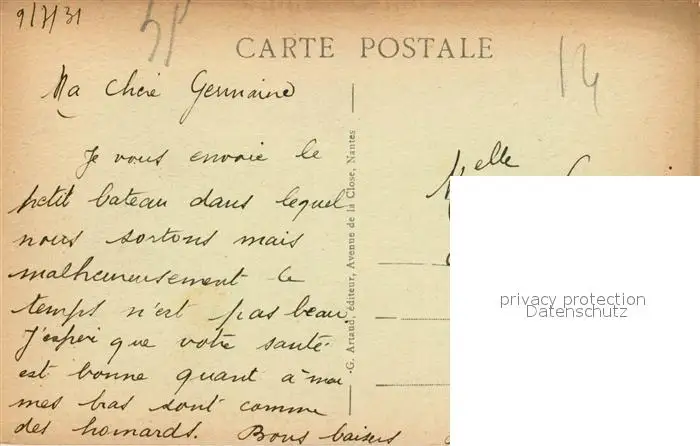 9/7/31
CARTE POSTALE
14
Ma chère Germaine
Je vous envoie le
petit bateau dans lequel
nous sortons mais
malheureusement le
temps n'est pas beau,
J'espèr que votre santé
est bonne quant à moi
mes bas sont comme
des homards. Bons baisers
G. Artaud, éditeur, Avenue de la Close, Nantes
Melle
privacy protection
Datenschutz